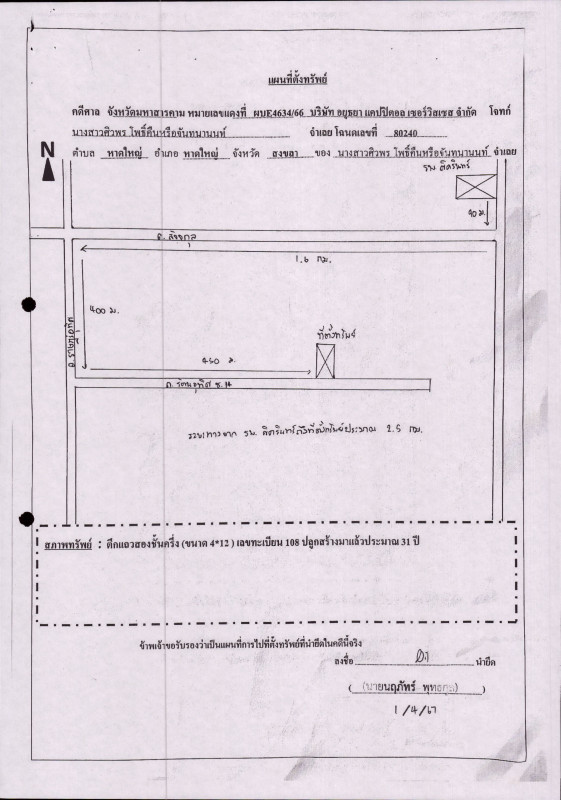 แผนที่ตั้งทรัพย์
คดีศาล จังหวัดมหาสารคาม หมายเลขแดงที่ ผบE4634/66 บริษัท อยุธยา แคปปิตอล เซอร์วิสเซส จำกัด โจทก์
นางสาวศิวพร โพธิ์คืนหรือจันทนานนท์ จำเลย โฉนดเลขที่ 80240
N
ตำบล หาดใหญ่ อำเภอ หาดใหญ่ จังหวัด สงขลา ของ นางสาวศิวพร โพธิ์คืนหรือจันทนานนท์ จำเลย
รพ. ศิครินทร์
90 ม.
1.6 กม.
400 ม.
ที่ตั้งทรัพย์
450 ม.
ถ. รัตนอุทิศ ซ.14
รวมทางจาก รพ. ศิครินทร์ถึงที่ตั้งทรัพย์ประมาณ 2.5 กม.
สภาพทรัพย์ : ตึกแถวสองชั้นครึ่ง (ขนาด 4*12 ) เลขทะเบียน 108 ปลูกสร้างมาแล้วประมาณ 31 ปี
ข้าพเจ้าขอรับรองว่าเป็นแผนที่การไปที่ตั้งทรัพย์ที่นำยึดในคดีนี้จริง
ลงชื่อ นำยึด
( นายนฤภัทร์ )
1/4/67